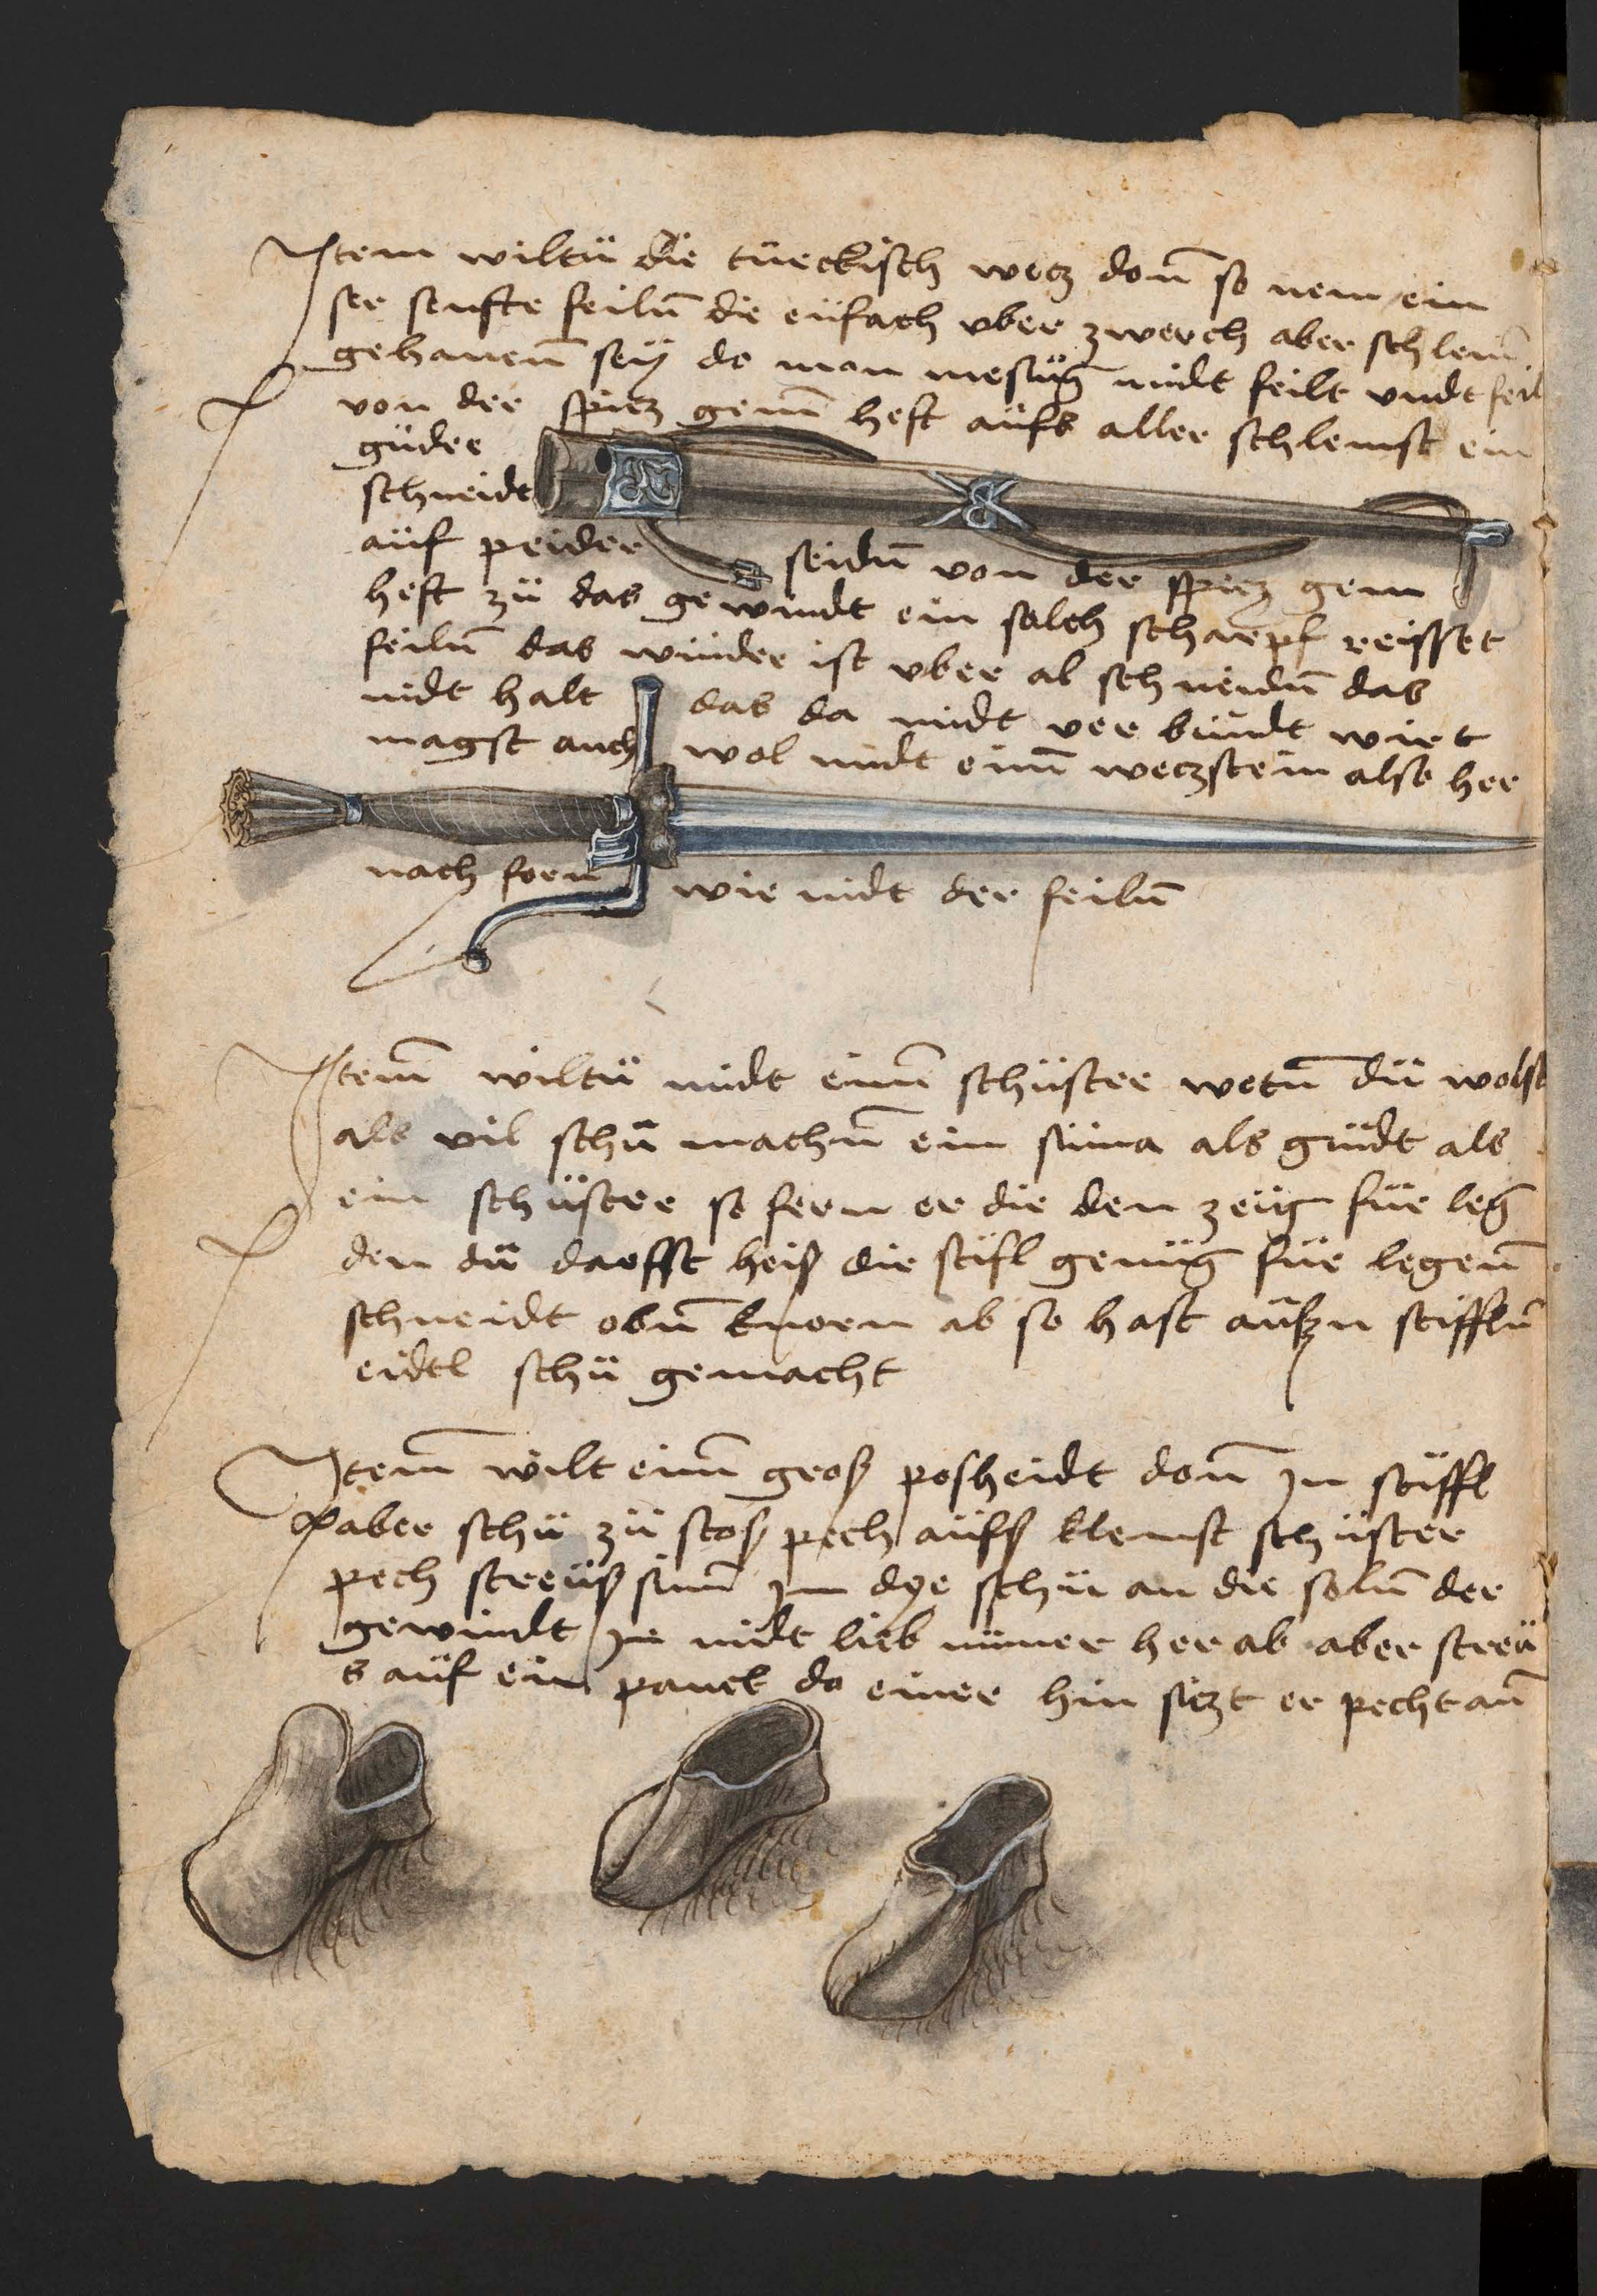 Item wiltu die türckisch wecz don̄ so nem ein
ser senfte feiln̄ die eüfach vber zwerch aber schlem̄
gehauen̄ sey do man mesing midt feilt vndt feil
von der spicz gem̄ heft aüfs aller schlemst ein
güder
schneidt
aüf peider seidn̄ von der spicz gem
heft zü das gewindt ein solch scharpf reisset
feiln̄ das wünder ist vber al schneidn̄ das
nidt halt das da midt ver bündt wirt
magst auch wol midt eim̄ weczstein also her
nach forn wie midt der feiln̄
Item̄ wiltü midt eim̄ schüster wetn̄ dü wolst
als vil schü machn̄ ein süma als güdt als
ein schüster so fern er die den zeüg für leg
den dü darfst heiß die stifl genüg für legen̄
schneidt obn̄ knorn ab so hast aüßn stiffln̄
eidtl schü gemacht
Item̄ wilt eim̄ groß posheidt don̄ In stiffl
aber schü zü stoß pech aüfß klemst schüster
pech streüß eim̄ im dye schü an die soln̄ der
gewindt Im midt lieb nimer her ab aber streü
s aüf ein panck do einer hin siczt er pecht an̄